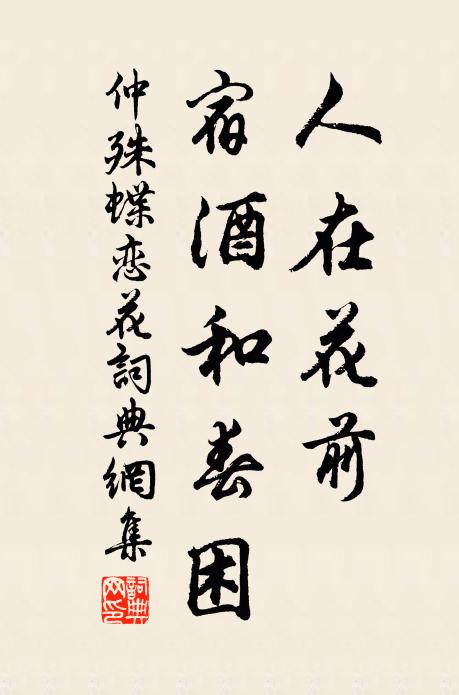 人在花前
宿酒和春困
仲殊蝶恋花詞典網集
詞典网印